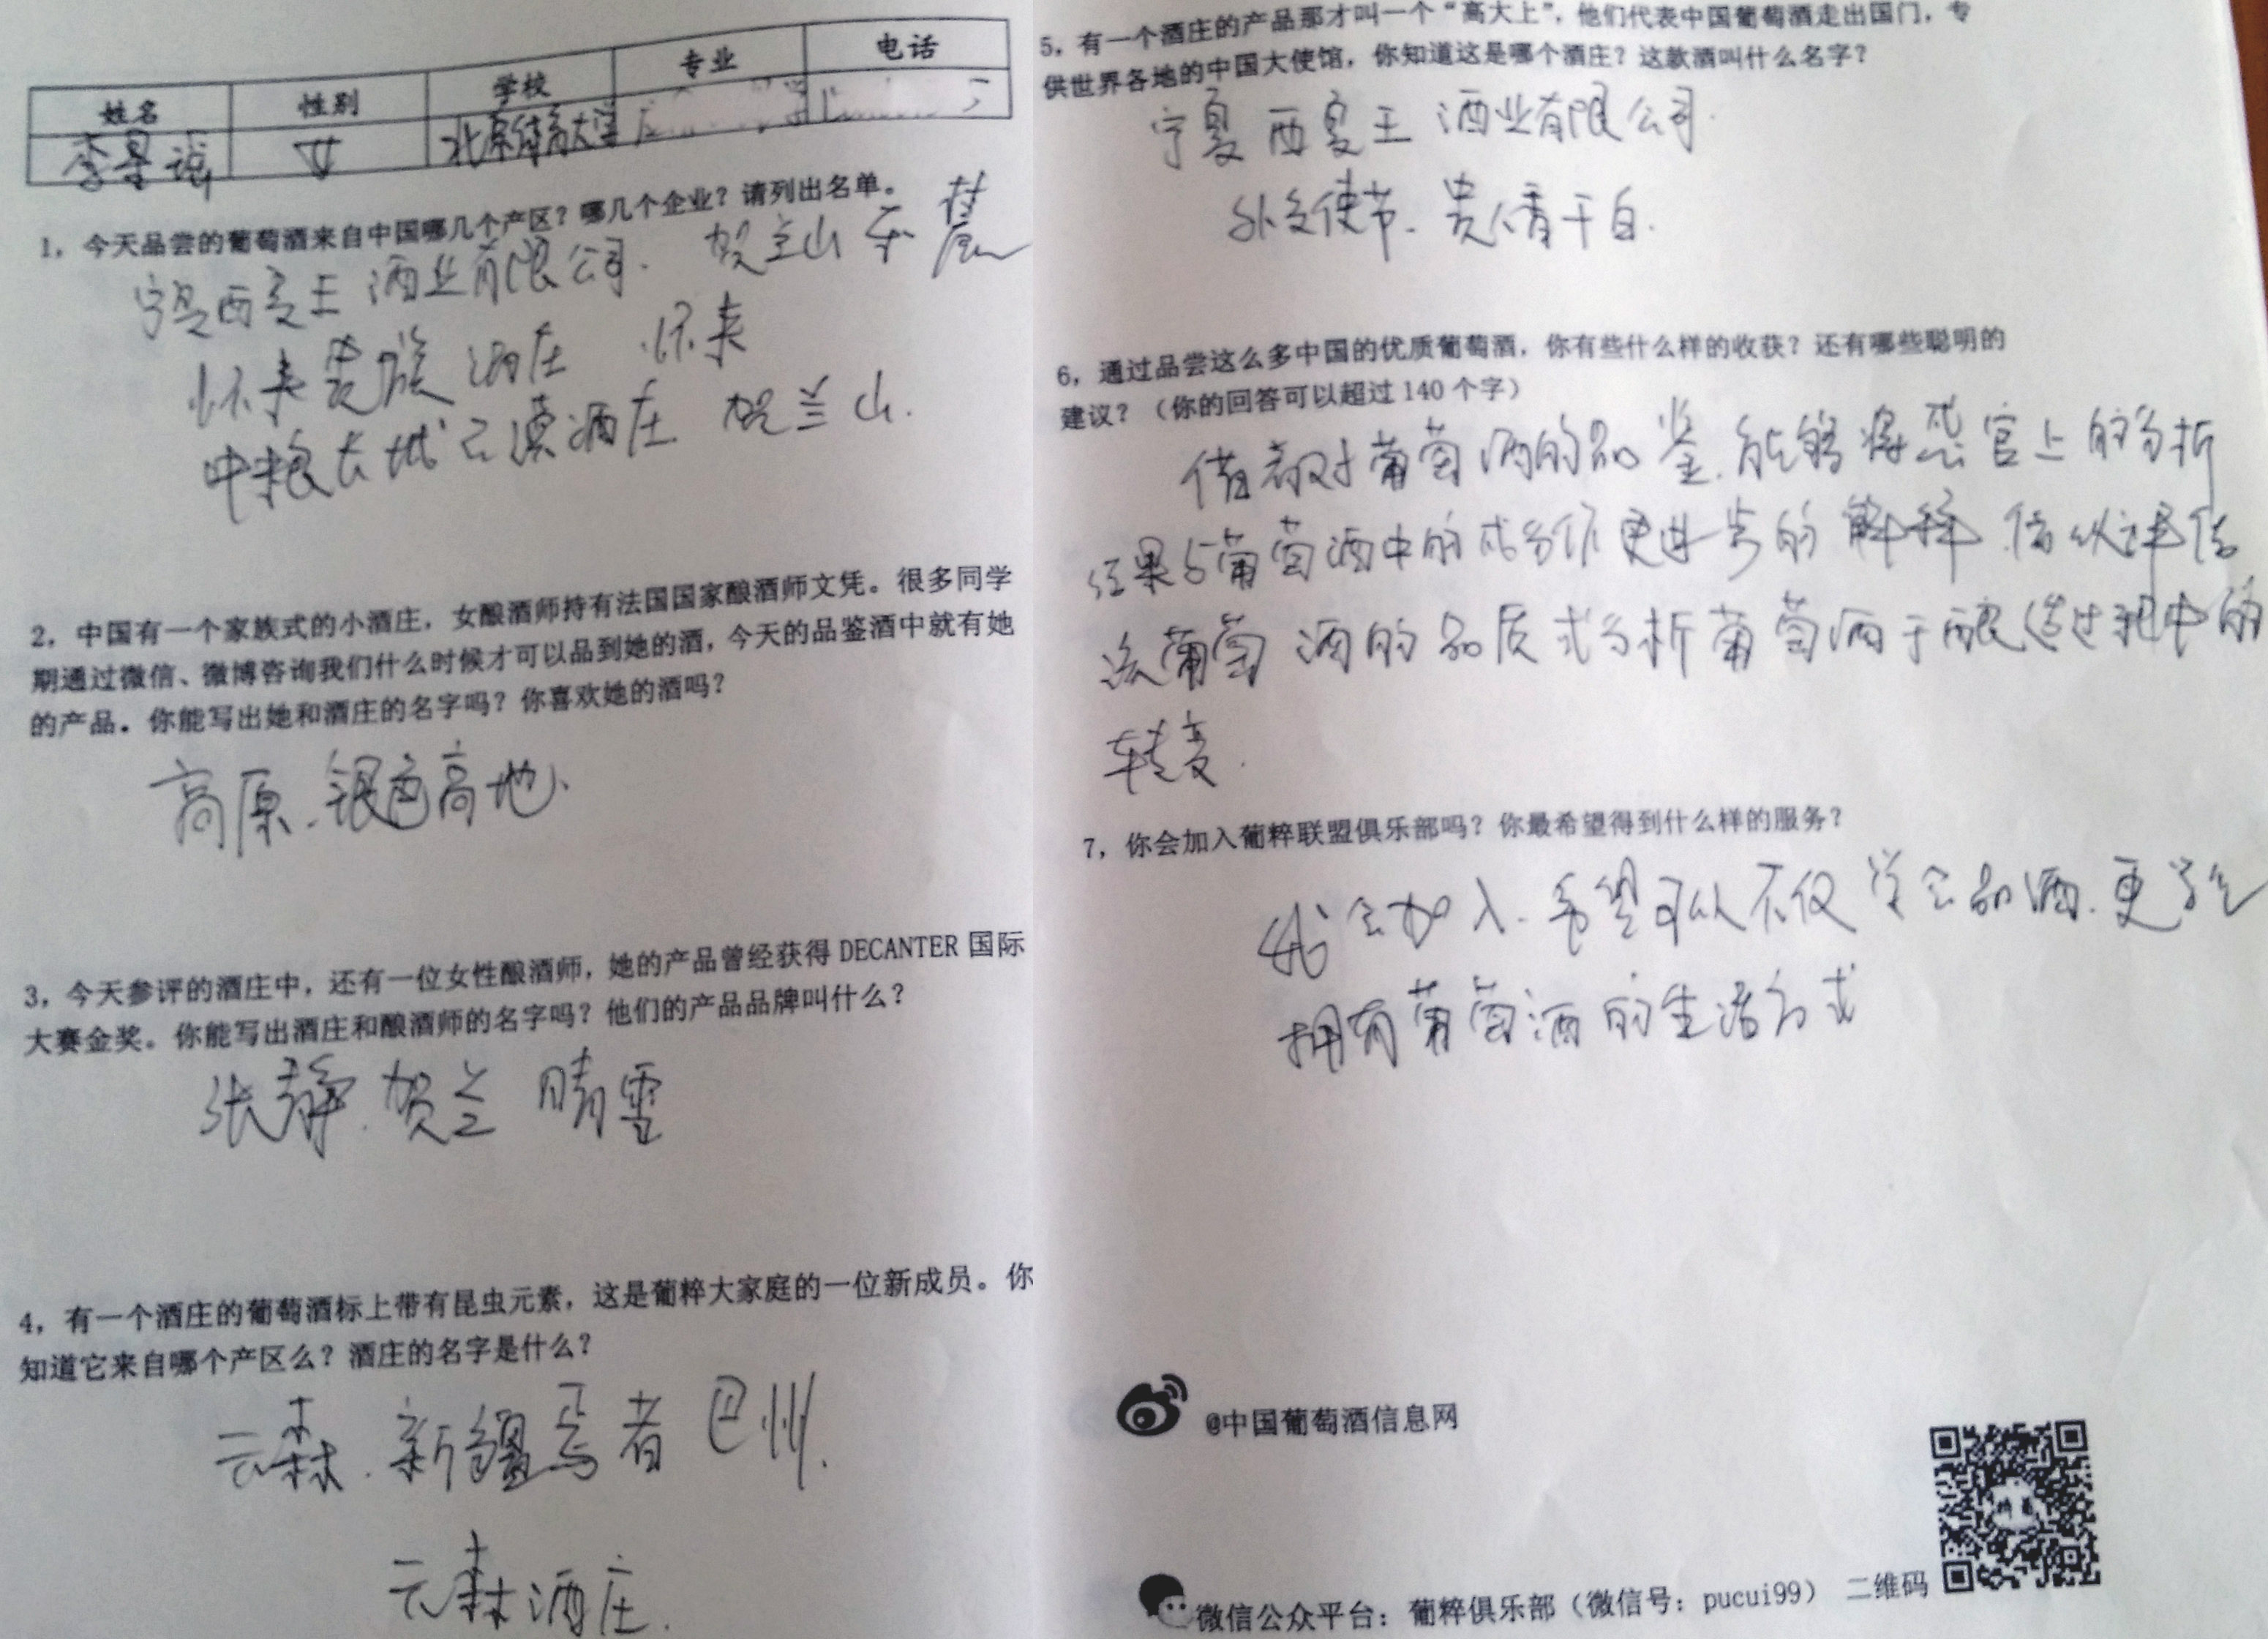 姓名 性别 学校 专业 电话
李景谣 女 北京体育大学
1，今天品尝的葡萄酒来自中国哪几个产区？哪几个企业？请列出名单。
宁夏西夏王酒业有限公司. 贺兰山东麓
怀来贵族酒庄 怀来
中粮长城云漠酒庄 贺兰山.
2，中国有一个家族式的小酒庄，女酿酒师持有法国国家酿酒师文凭。很多同学
期通过微信、微博咨询我们什么时候才可以品到她的酒，今天的品鉴酒中就有她
的产品。你能写出她和酒庄的名字吗？你喜欢她的酒吗？
高原.银色高地.
3，今天参评的酒庄中，还有一位女性酿酒师，她的产品曾经获得 DECANTER 国际
大赛金奖。你能写出酒庄和酿酒师的名字吗？他们的产品品牌叫什么？
张静.贺兰晴雪
4，有一个酒庄的葡萄酒标上带有昆虫元素，这是葡粹大家庭的一位新成员。你
知道它来自哪个产区么？酒庄的名字是什么？
元森.新疆焉耆巴州.
元森酒庄.
5，有一个酒庄的产品那才叫一个“高大上”，他们代表中国葡萄酒走出国门，专
供世界各地的中国大使馆，你知道这是哪个酒庄？这款酒叫什么名字？
宁夏西夏王酒业有限公司.
外交使节.贵人香干白.
6，通过品尝这么多中国的优质葡萄酒，你有些什么样的收获？还有哪些聪明的
建议？（你的回答可以超过 140 个字）
借着对葡萄酒的品鉴.能够将感官上的分析
结果与葡萄酒中的成分作更进步的解释.借以评估
该葡萄酒的品质或分析葡萄酒于酿造过程中的
转变.
7，你会加入葡粹联盟俱乐部吗？你最希望得到什么样的服务？
我会加入.希望可以不仅学会品酒.更学会
拥有葡萄酒的生活方式
@中国葡萄酒信息网
微信公众平台：葡粹俱乐部（微信号：pucui99） 二维码